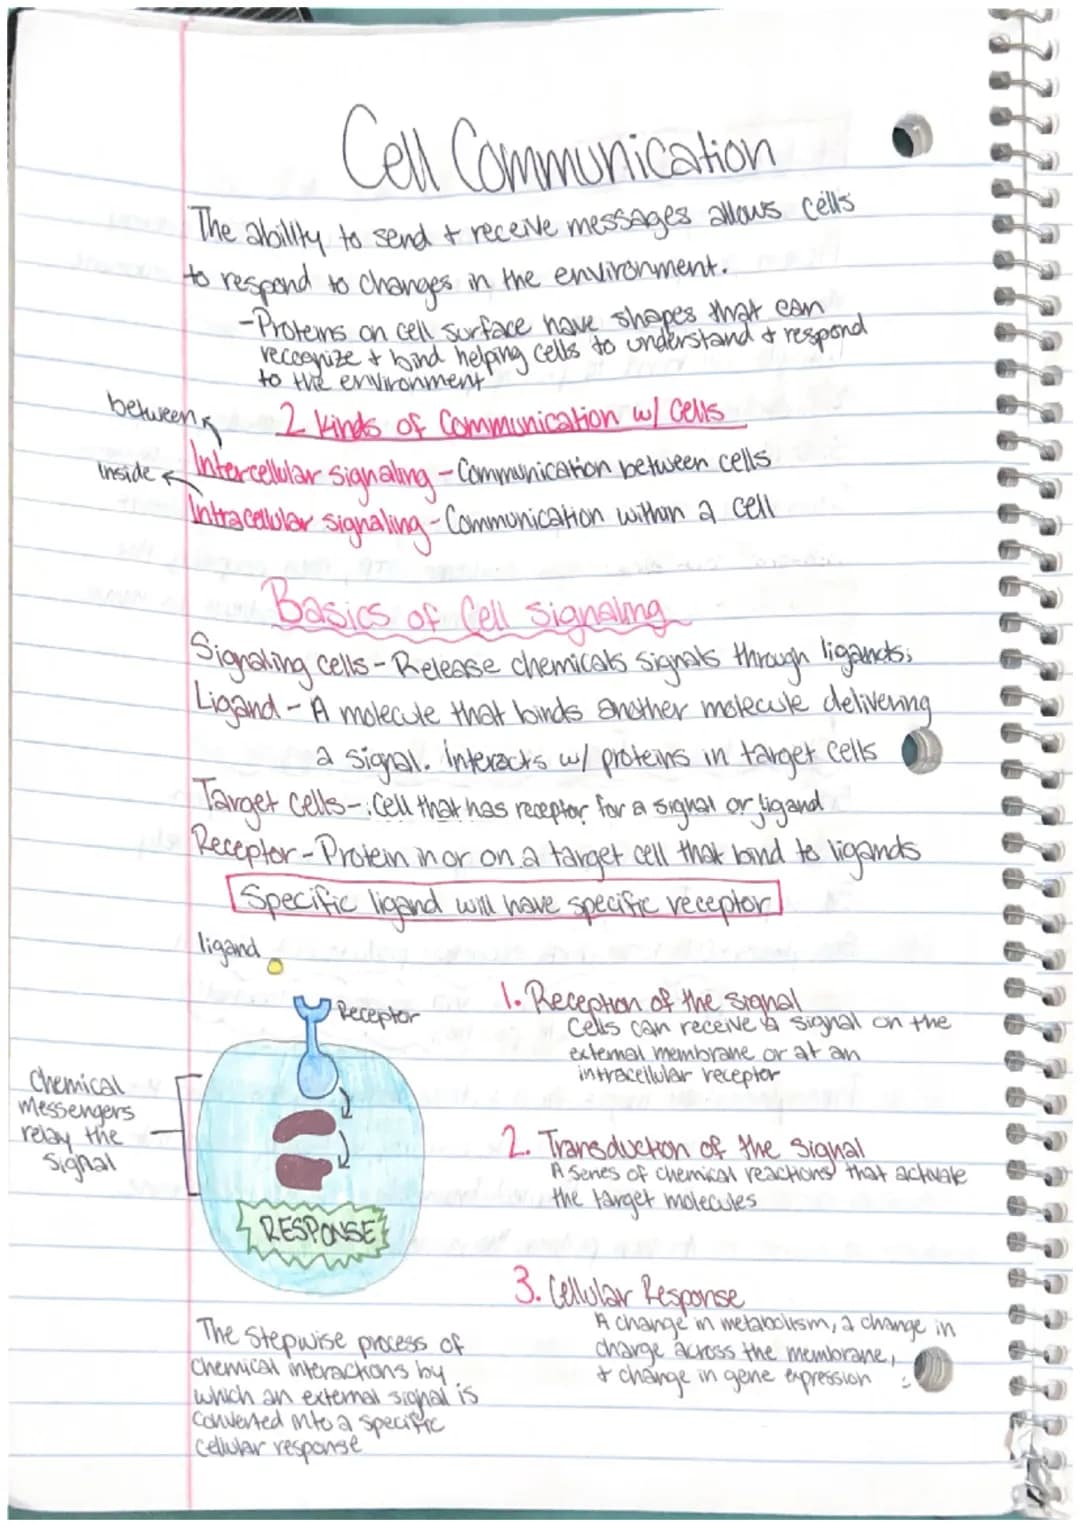 Cell Communication
The ability to send + receive messages allows cells
to respond to changes in the environment.
-Proteins on cell surface have shapes that can
recognize + bind helping cells to understand + respond
to the environment
between
2 kinds of Communication w/ cells
Inside
Intercellular signaling - Communication between cells
Intracellular signaling - Communication within a cell
Basics of Cell Signaling
Signaling cells - Release chemicals signals through ligands;
Ligand - A molecule that binds another molecule delivering
a signal. interacts w/ proteins in target cells
Target cells-: Cell that has receptor for a signal or ligand
Receptor - Protein in or on a target cell that bind to ligands
Specific ligand will have specific receptor
ligand
Receptor
Chemical
messengers
relay the
signal
RESPONSE
The stepwise process of
chemical interactions by
which an external signal is
converted into a specific
cellular response
1. Reception of the signal
Cells can receive a signal on the
external membrane or at an
intracellular receptor
2. Transduction of the signal
A series of chemical reactions that activate
the target molecules
3. Cellular Response
A change in metabolism, a change in
charge across the membrane,
+ change in gene expression